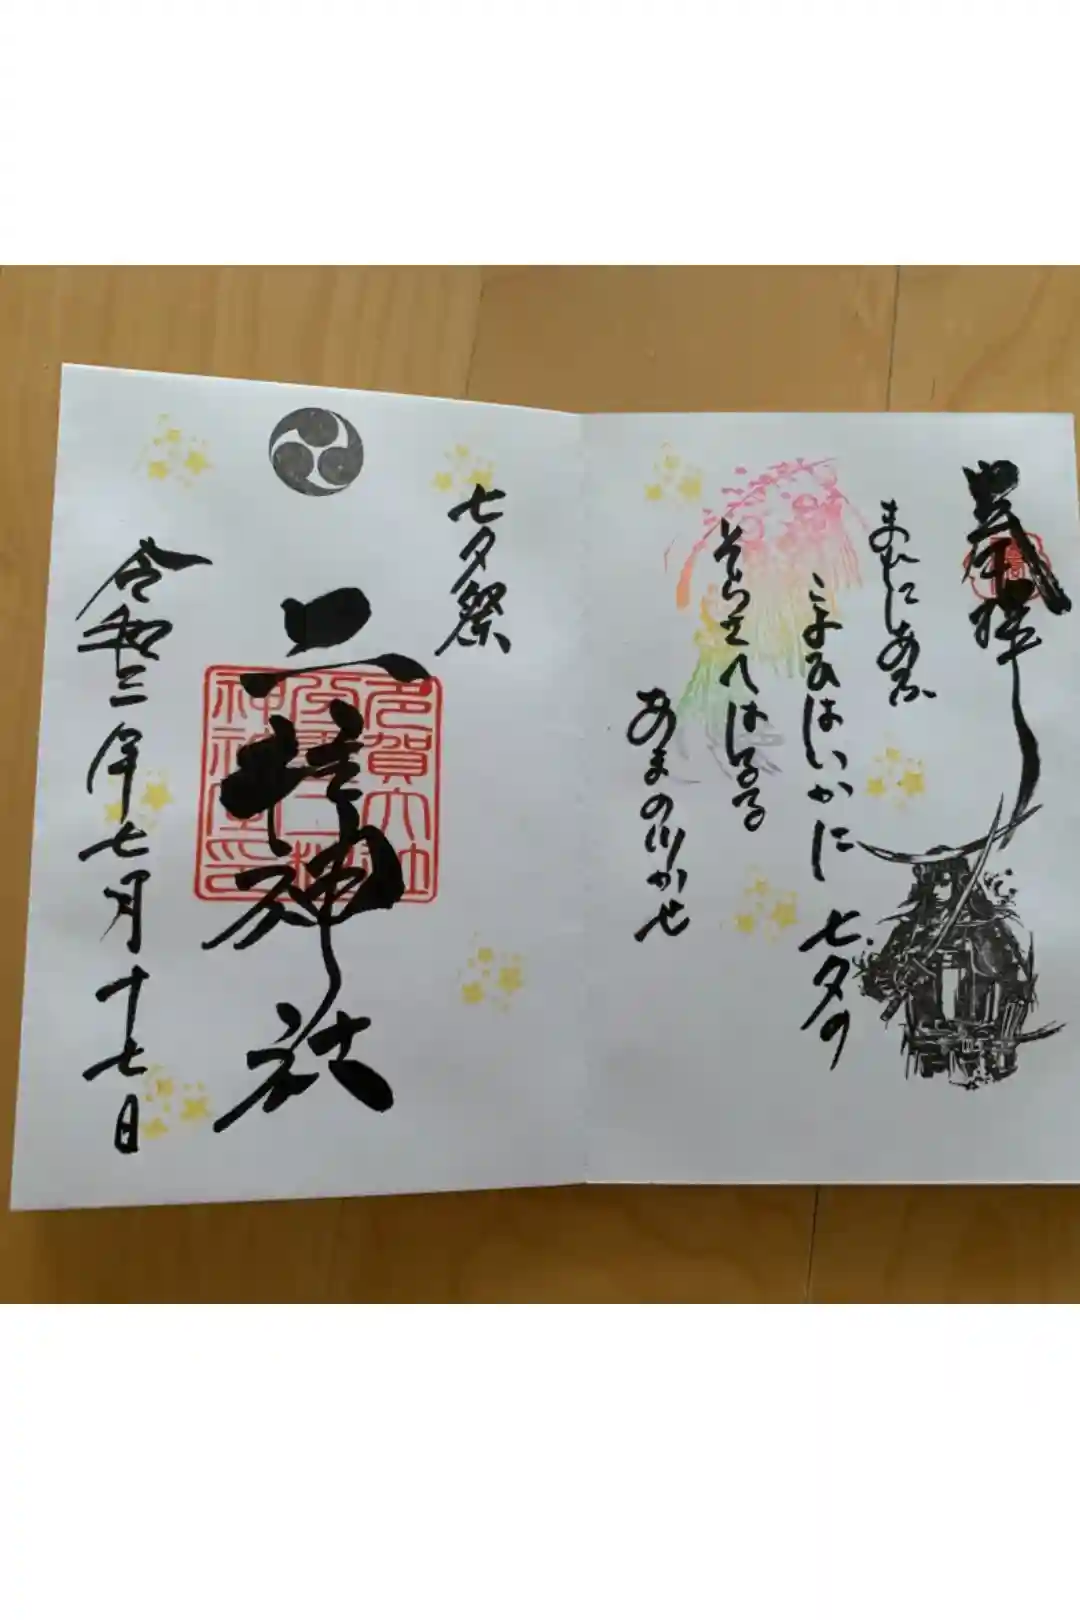 奉拝
まれにあふ
こよひはいかに 七夕の
そらさへはるる
あまの川かせ
七夕祭
二柱神社
多賀大社
分霊二柱
令和三年七月十七日